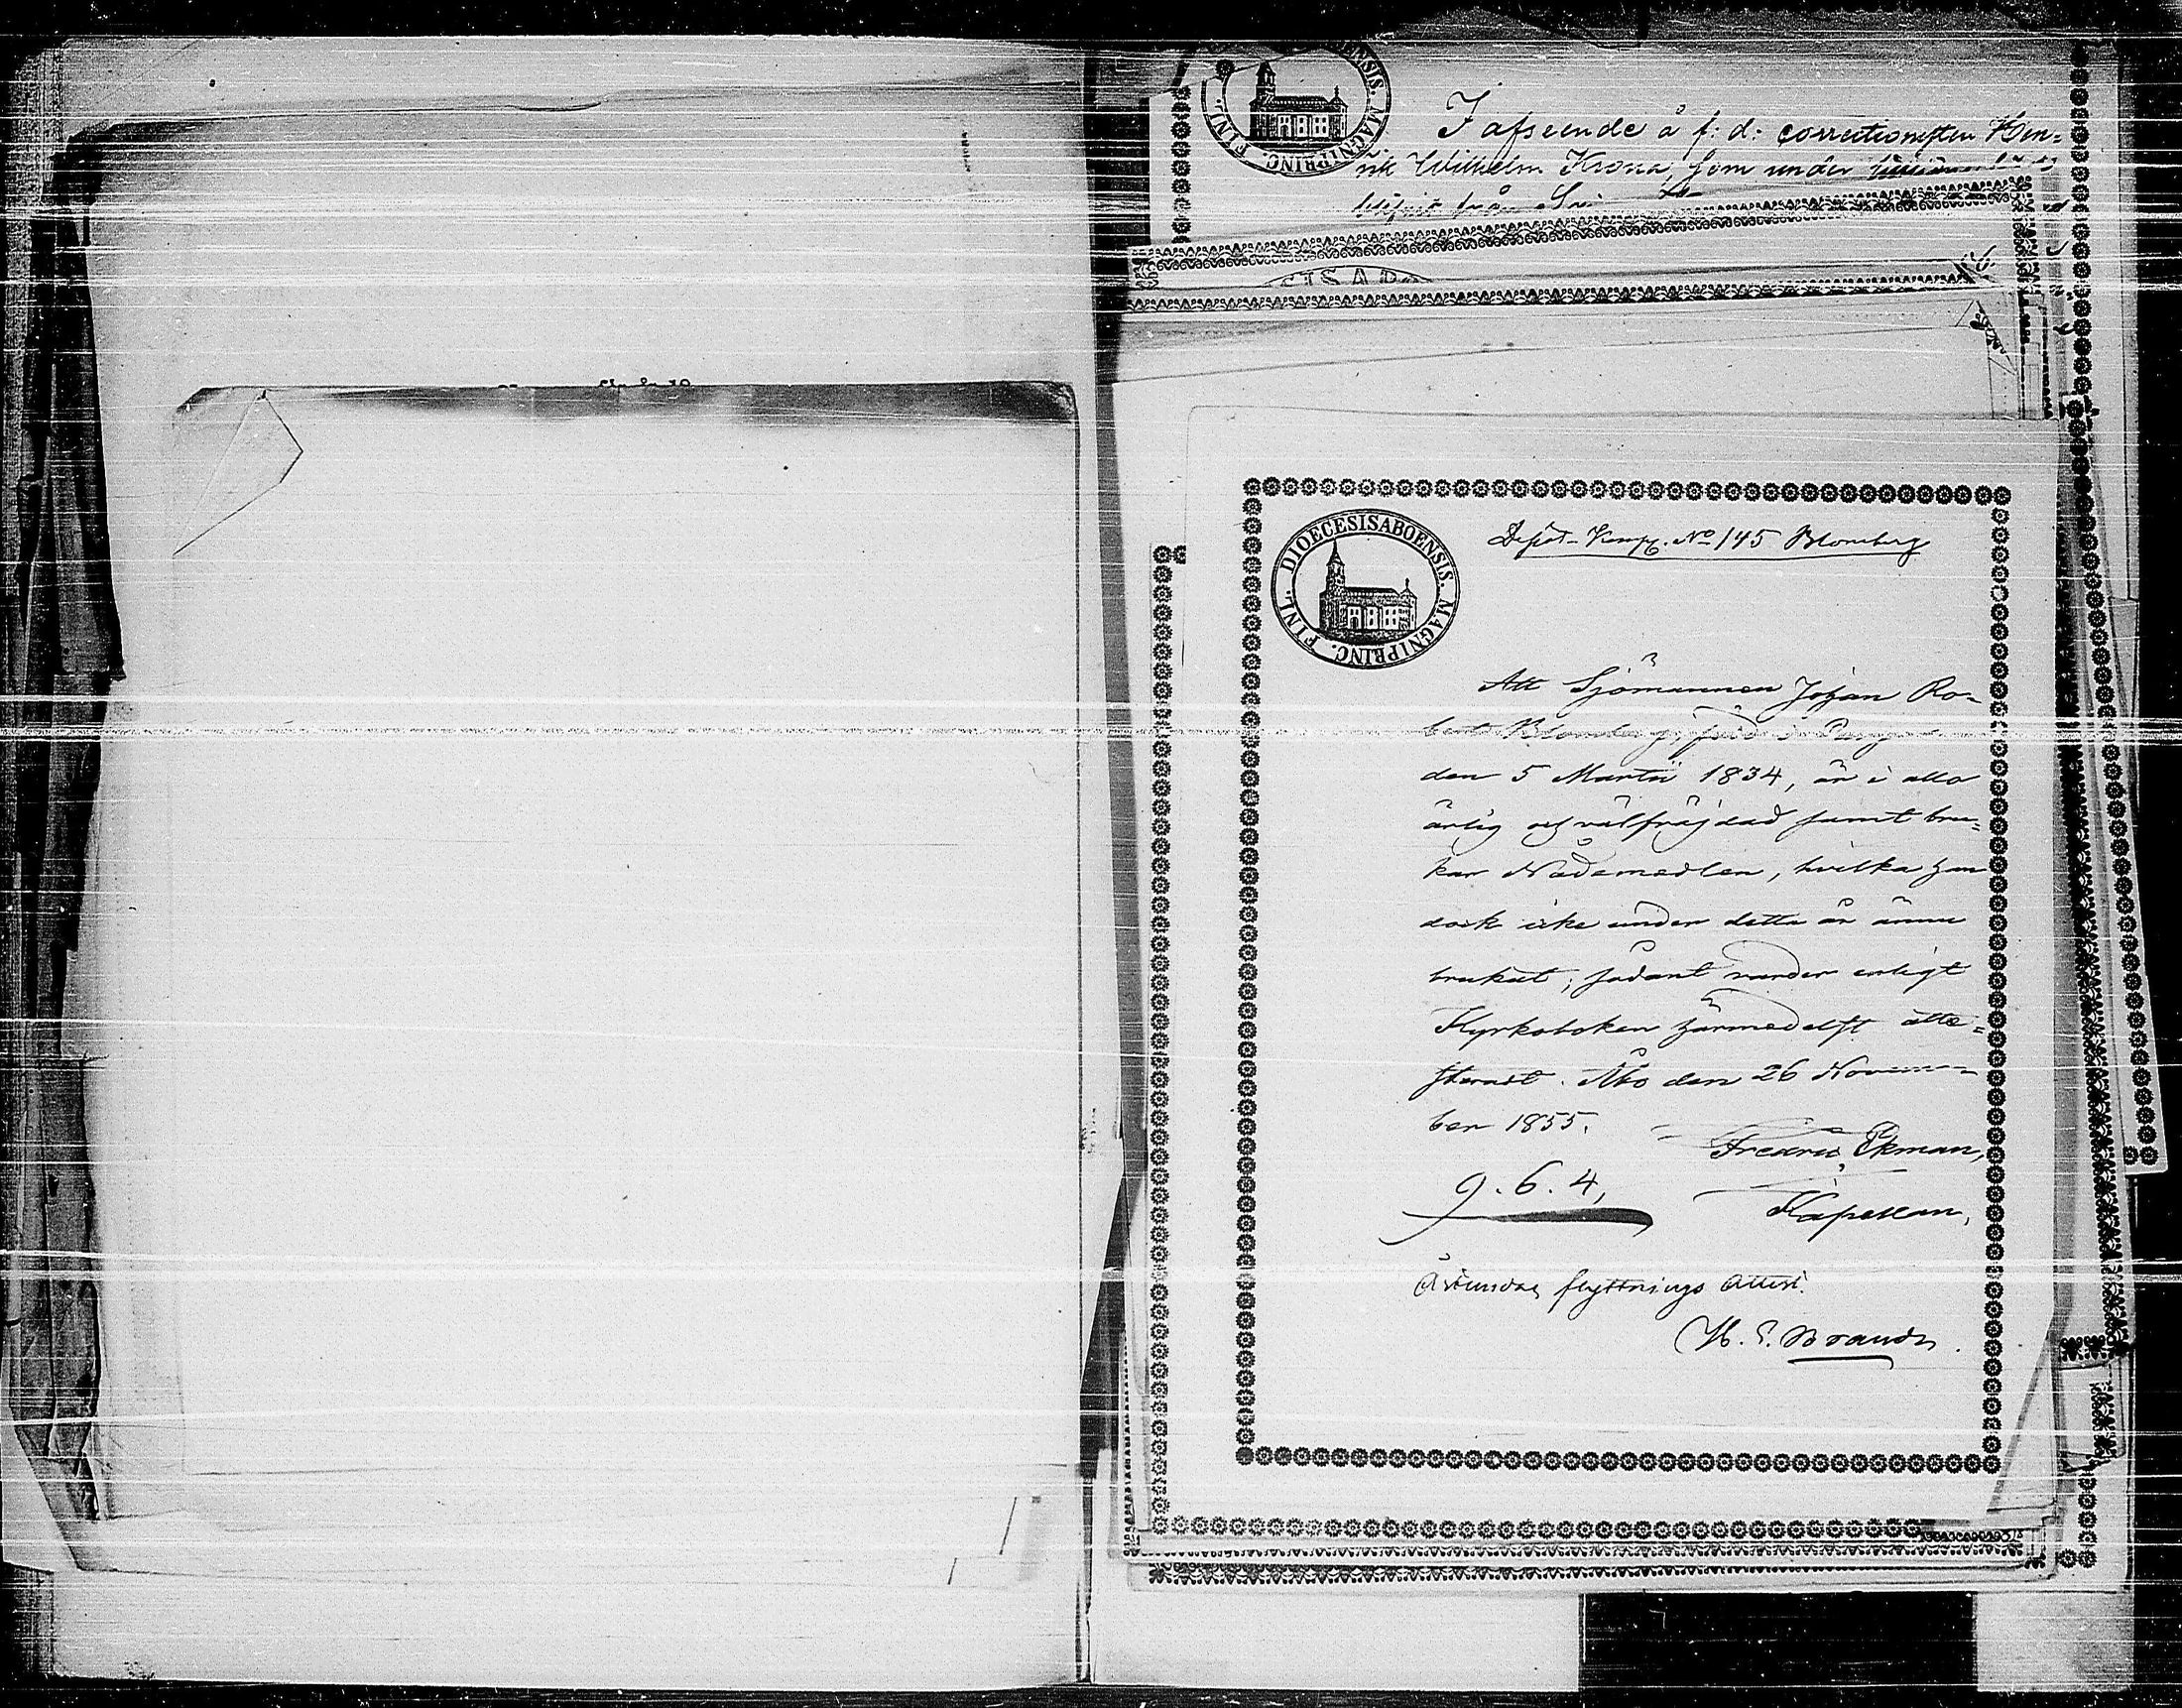 I afseende å f: d: correctionisten Hen-
rik Wilhelm Krona, som under
från
DIOECESIS ABOENSIS. MAGNI PRINC. FINL.
Depot-Komp. No 145 Blomberg
Att Sjömannen Johan Ro-
bert Blomberg, född i Pargas
den 5 Martii 1834, är i allo
ärlig och välfräjdad samt bru-
kar Nådemedlen, hvilka han
dock icke under detta år ännu
brukat; sådant varder enligt
Kyrkoboken härmedelst atte-
steradt. Åbo den 26 Novem-
ber 1855.
Fredric Ekman,
Kapellan,
9. 6. 4,
Åstundar flyttnings attest.